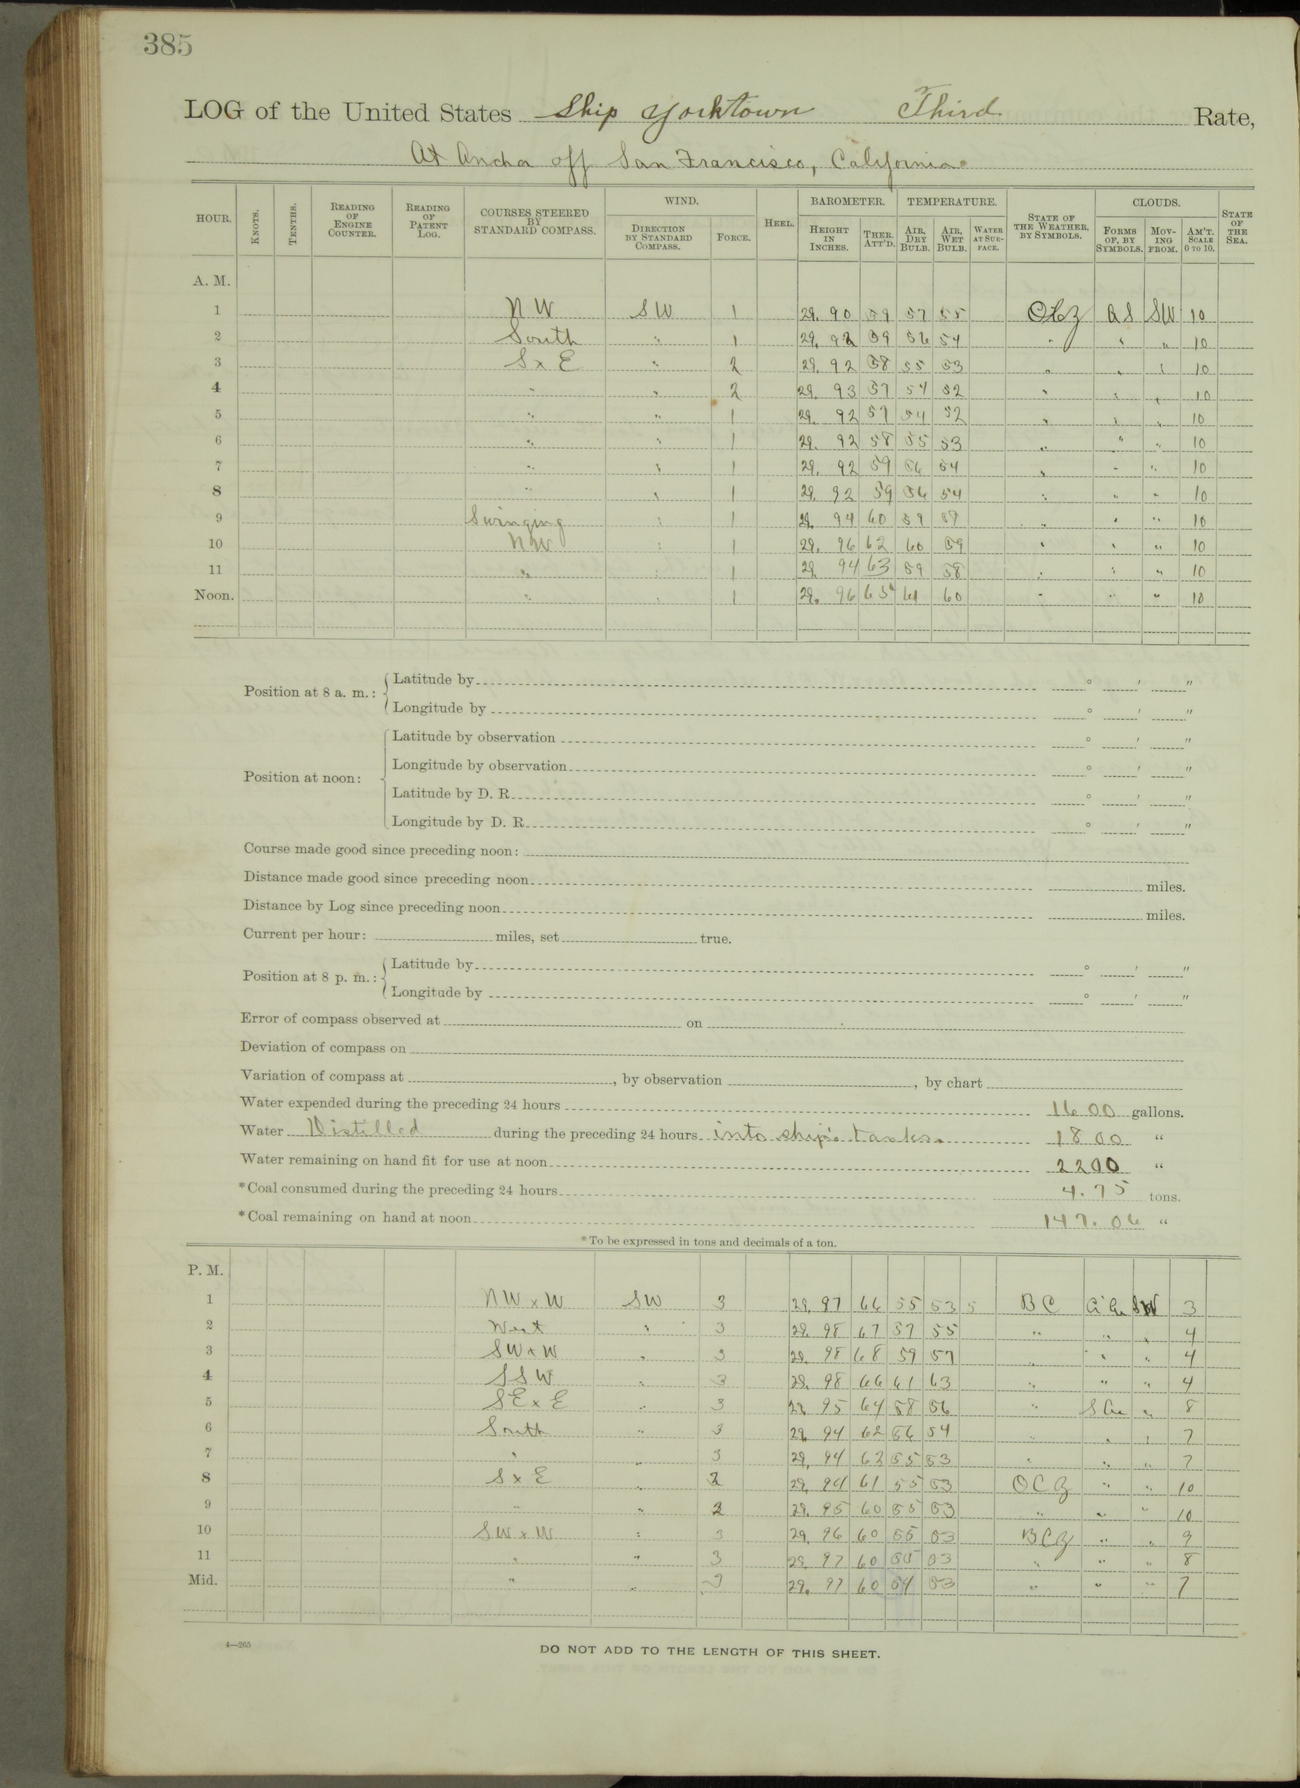 385
LOG of the United States Ship Yorktown Third Rate,
At Anchor off San Francisco, California.
HOUR. KNOTS. TENTHS. READING OF ENGINE COUNTER. READING OF PATENT LOG. COURSES STEERED BY STANDARD COMPASS. WIND. DIRECTION BY STANDARD COMPASS. FORCE. HEEL. BAROMETER. HEIGHT IN INCHES. THER. ATT'D. TEMPERATURE. AIR, DRY BULB. AIR, WET BULB. WATER AT SURFACE. STATE OF THE WEATHER, BY SYMBOLS. CLOUDS. FORMS OF, BY SYMBOLS. MOVING FROM. AM'T. SCALE 0 TO 10. STATE OF THE SEA.
A. M.
1 NW SW 1 29.90 59 57 55 AS SW 10
2 South " 1 29.92 59 56 54 " " " 10
3 SxE " 2 29.92 58 55 53 " " " 10
4 " " 2 29.93 57 54 52 " " " 10
5 " " 1 29.92 57 54 52 " " " 10
6 " " 1 29.92 58 55 53 " " " 10
7 " " 1 29.92 59 56 54 " " " 10
8 " " 1 29.92 59 56 54 " " " 10
9 Swinging " 1 29.94 60 59 57 " " " 10
10 NW " 1 29.96 62 60 59 " " " 10
11 " " 1 29.94 63 59 58 " " " 10
Noon. " " 1 29.96 65 61 60 " " " 10
Position at 8 a. m.: Latitude by ° ′ ″
Longitude by ° ′ ″
Position at noon: Latitude by observation ° ′ ″
Longitude by observation ° ′ ″
Latitude by D. R. ° ′ ″
Longitude by D. R. ° ′ ″
Course made good since preceding noon:
Distance made good since preceding noon miles.
Distance by Log since preceding noon miles.
Current per hour: miles, set true.
Position at 8 p. m.: Latitude by ° ′ ″
Longitude by ° ′ ″
Error of compass observed at on
Deviation of compass on
Variation of compass at , by observation , by chart
Water expended during the preceding 24 hours 1600 gallons.
Water Distilled during the preceding 24 hours into ship's tanks. 1800 "
Water remaining on hand fit for use at noon 2200 "
*Coal consumed during the preceding 24 hours 4.75 tons.
*Coal remaining on hand at noon 147.06 "
*To be expressed in tons and decimals of a ton.
P. M.
1 NWxW SW 3 29.97 66 55 53 BC SW 3
2 West " 3 29.98 67 57 55 " " " 4
3 SWxW " 3 29.98 68 59 57 " " " 4
4 SSW " 3 29.98 66 61 63 " " " 4
5 SExE " 3 29.95 64 58 56 " S Cu " 8
6 South " 3 29.94 62 56 54 " " " 7
7 " " 3 29.94 62 55 53 " " " 7
8 SxE " 2 29.94 61 55 53 OCZ " " 10
9 " " 2 29.95 60 55 53 " " " 10
10 SWxW " 3 29.96 60 55 53 BCZ " " 9
11 " " 3 29.97 60 55 53 " " " 8
Mid. " " 3 29.97 60 54 53 " " " 7
4—265
DO NOT ADD TO THE LENGTH OF THIS SHEET.